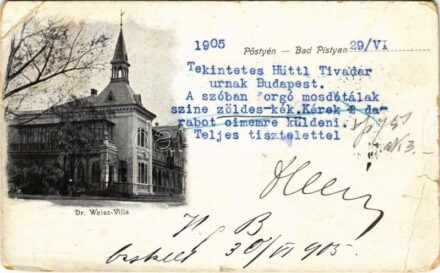 1905
Pöstyén — Bad Pistyan 29/VI
Tekintetes Hüttl Tivadar
urnak Budapest.
A szóban forgó mosdótálak
szine zöldes-kék. Kérek 2 da-
rabot cimemre küldeni.
Teljes tisztelettel
Dr. Weisz-Villa
N. B
30/VI 905.